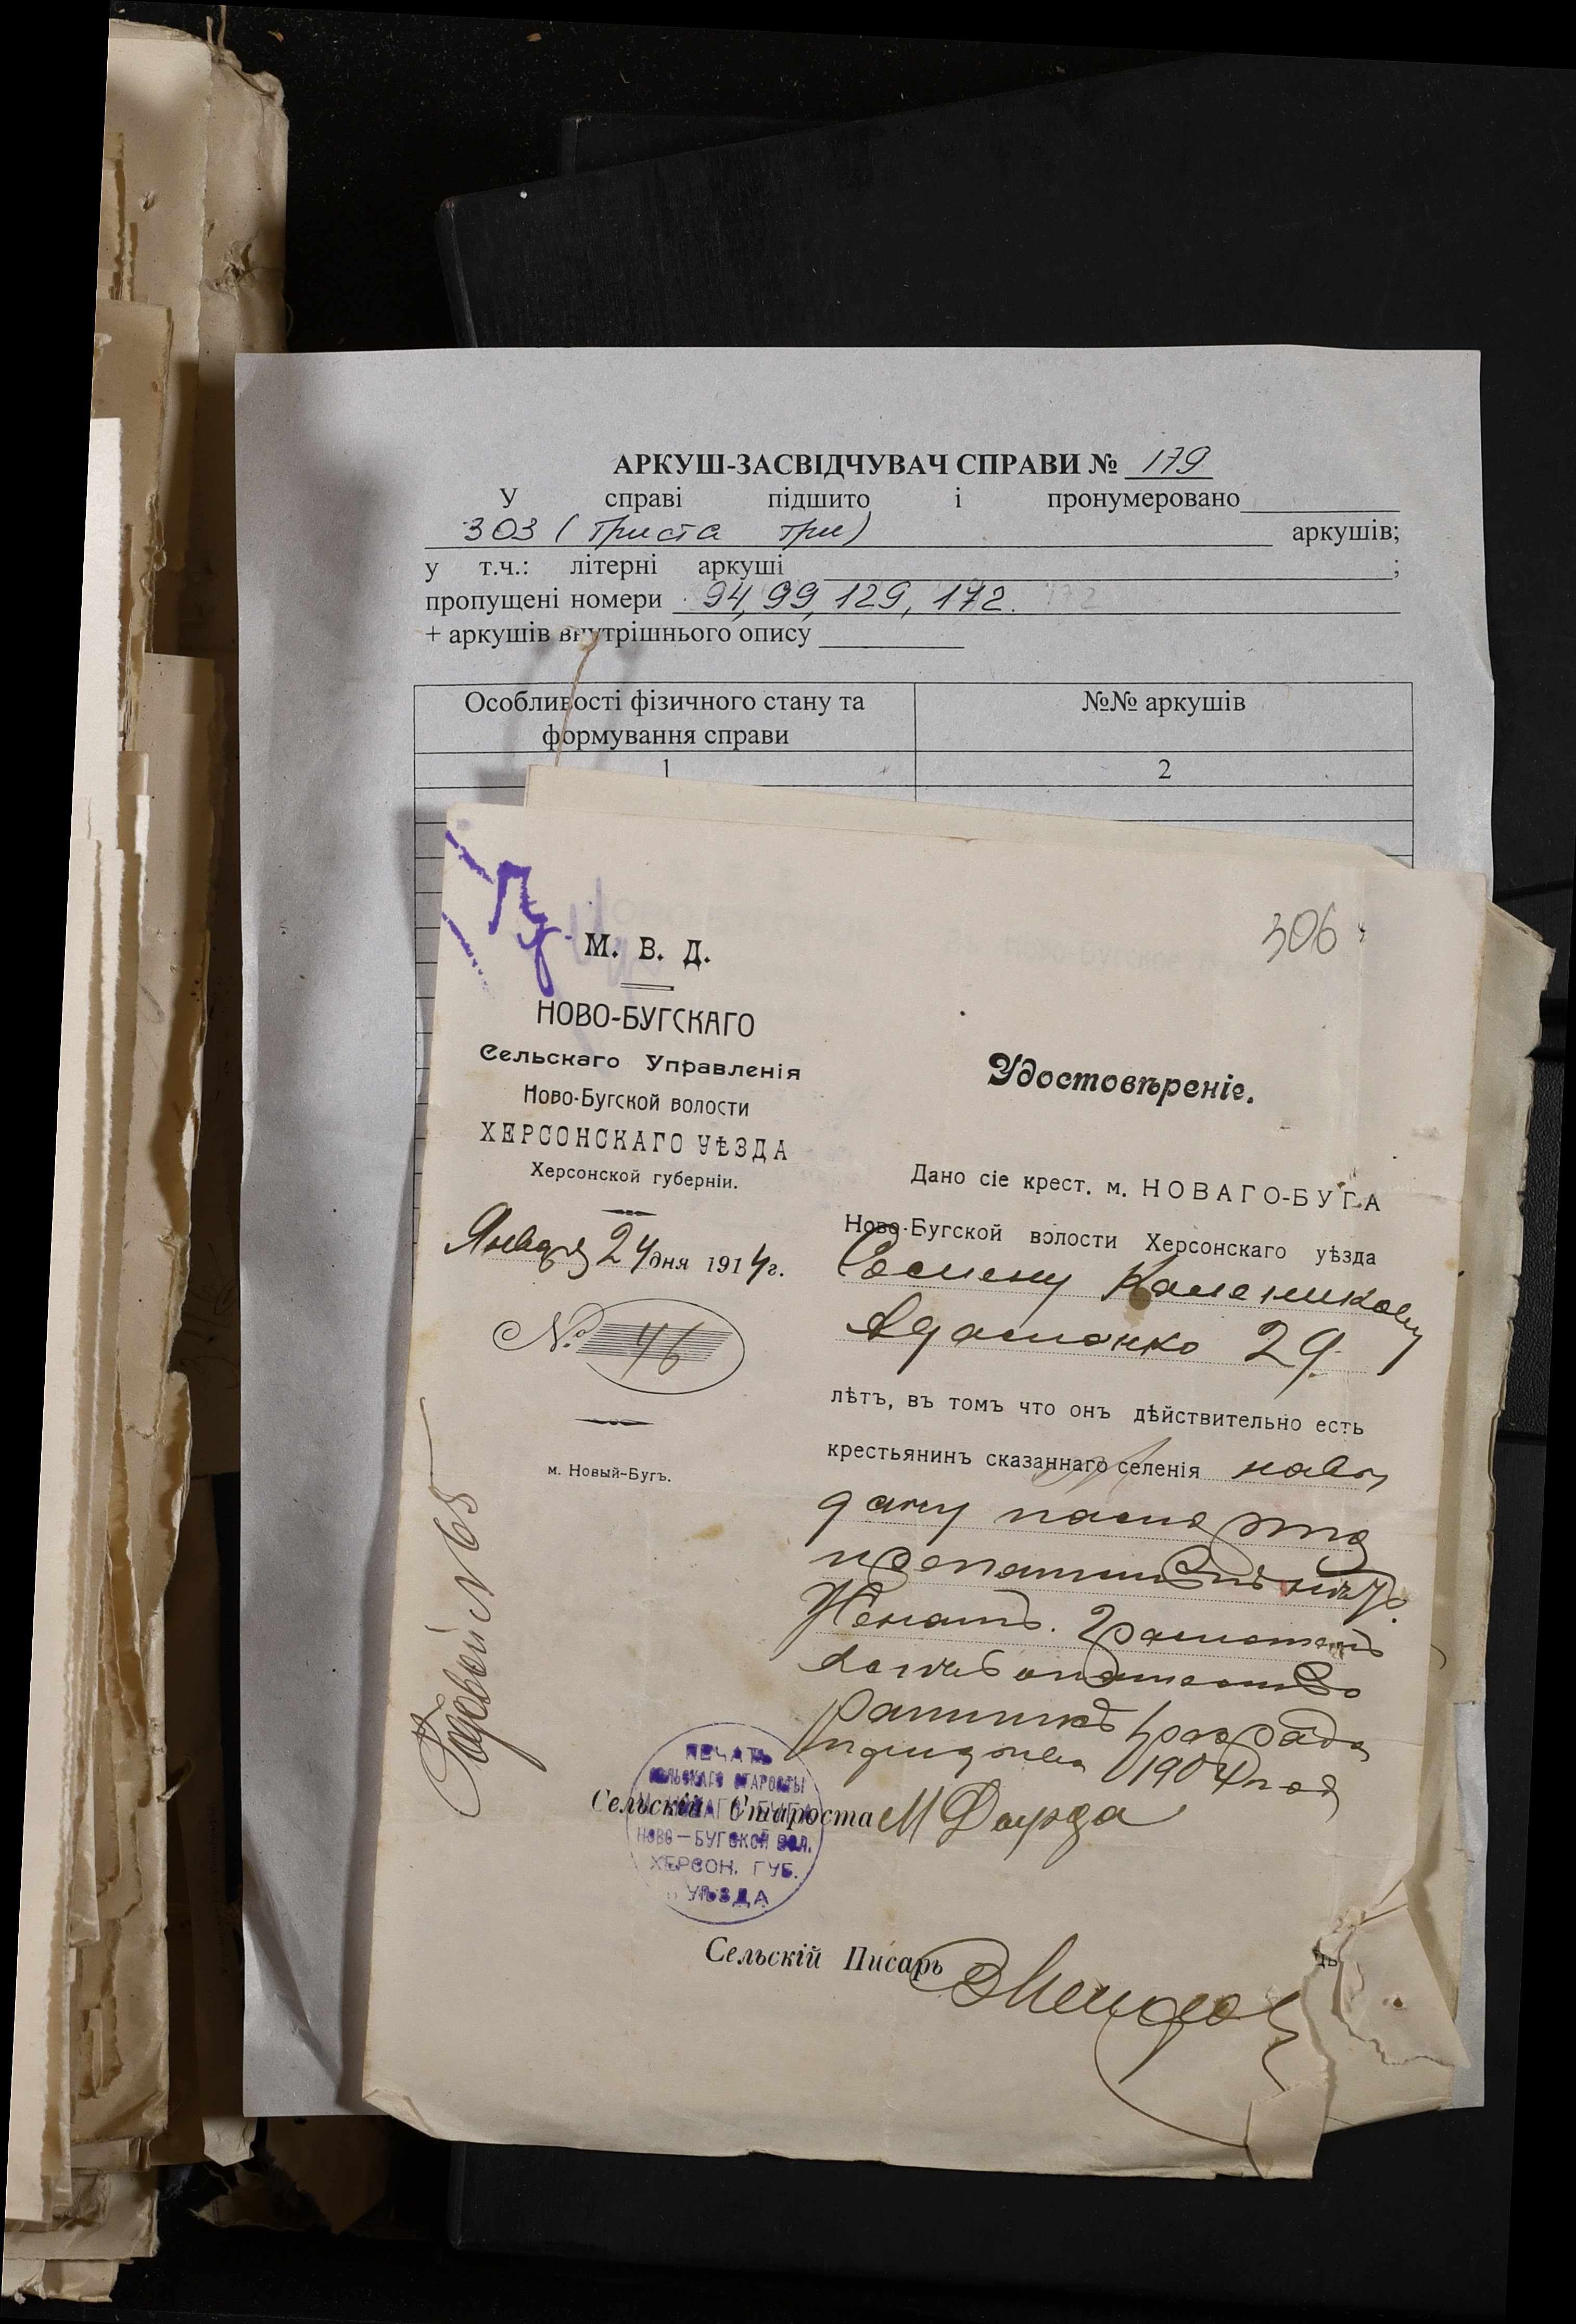 АРКУШ-ЗАСВІДЧУВАЧ СПРАВИ № 179
У справі підшито і пронумеровано
303 (триста три) аркушів;
у т.ч.: літерні аркуші ;
пропущені номери 94, 99, 129, 172.
+ аркушів внутрішнього опису
Особливості фізичного стану та формування справи
№№ аркушів
1
2
306
М. В. Д.
НОВО-БУГСКАГО
Сельскаго Управленія
Ново-Бугской волости
ХЕРСОНСКАГО УѢЗДА
Херсонской губерніи.
Января 24 дня 1914 г.
№ 46
м. Новый-Бугъ.
№ 65
Удостовѣреніе.
Дано сіе крест. м. НОВАГО-БУГА
Ново-Бугской волости Херсонскаго уѣзда
Семену Каленикову
Адаменко 29
лѣтъ, въ томъ что онъ дѣйствительно есть
крестьянинъ сказаннаго селенія на вы
дачу паспорта
препятствій нѣтъ.
Женатъ. Грамотенъ
1904 год
Сельскій Староста М
ПЕЧАТЬ
СЕЛЬСКАГО СТАРОСТЫ
М. НОВАГО-БУГА
НОВО-БУГСКОЙ ВОЛ.
ХЕРСОН. ГУБ.
УѢЗДА
Сельскій Писарь